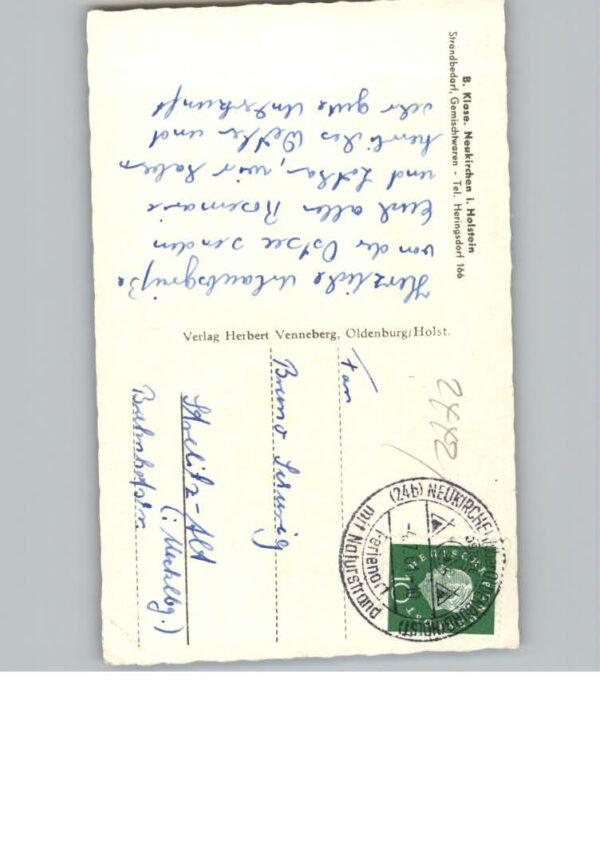 B. Klase, Neukirchen i. Holstein
Strandbedarf, Gemischtwaren - Tel. Heringsdorf 166
Herzliche Urlaubsgrüße
von der Ostsee senden
Euch allen Rosemarie
und Lothar, wir haben
herrliches Wetter und
sehr gute Unterkunft
Verlag Herbert Venneberg, Oldenburg/Holst.
Fam
Bruno
Strelitz-Alt
(i. Mecklbg.)
2442
(24b) NEUKIRCHEN
Ferienort
mit Naturstrand
10